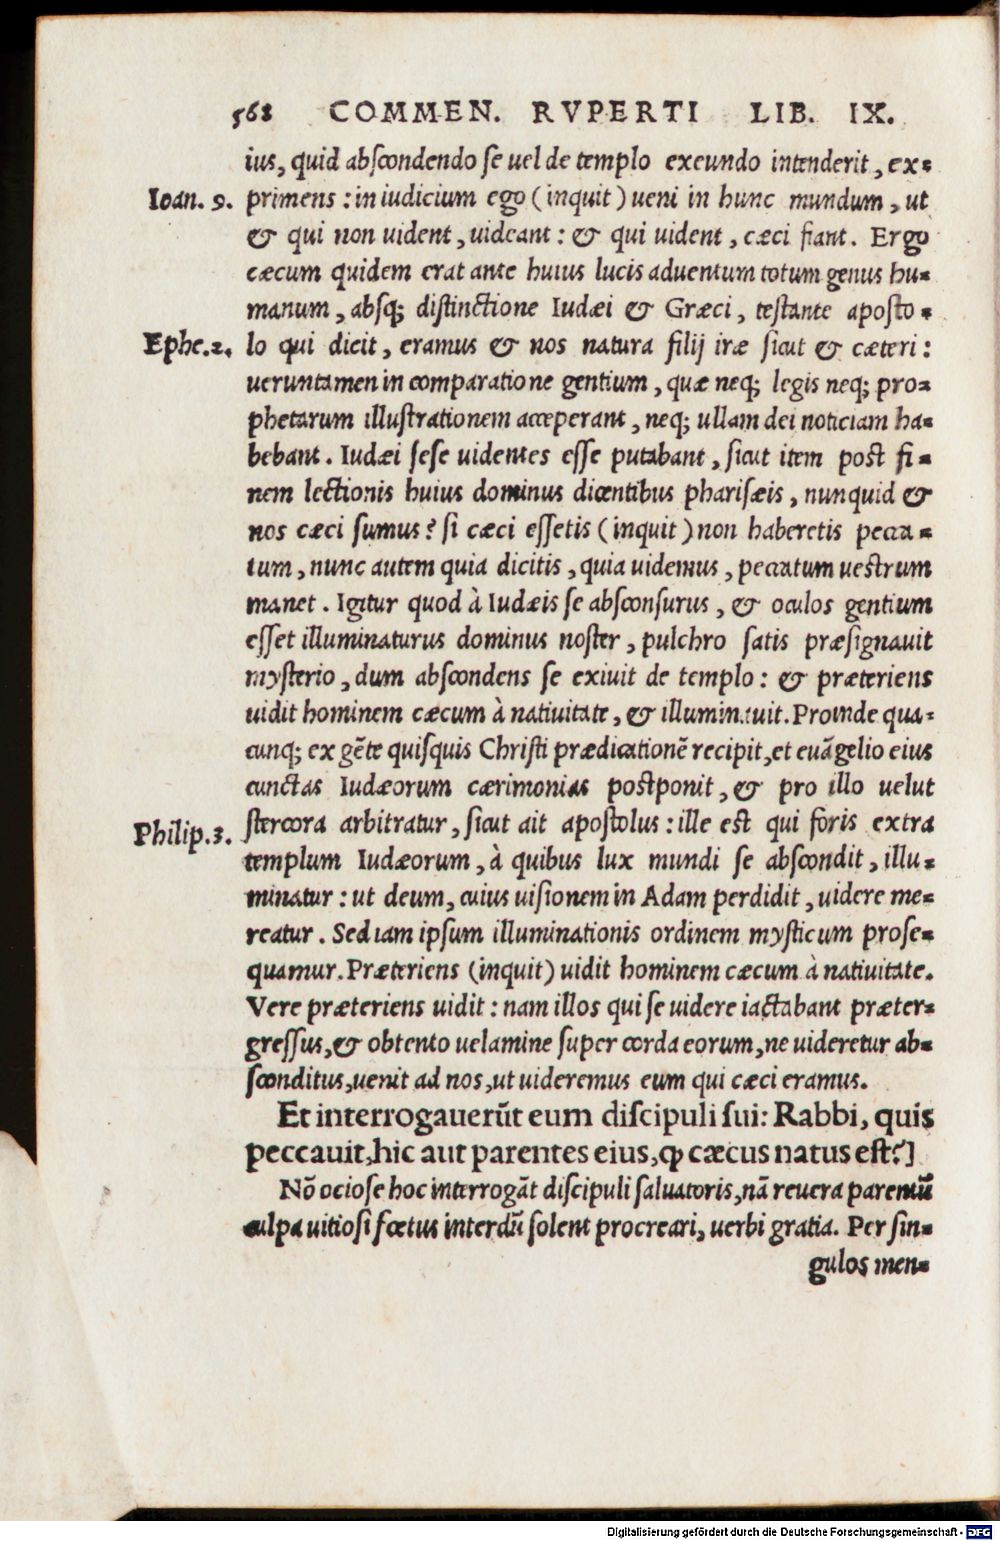 568 COMMEN. RVPERTI LIB. IX.
ius, quid abſcondendo ſe uel de templo exeundo intenderit, ex-
Ioan. 9. primens: in iudicium ego (inquit) ueni in hunc mundum, ut
& qui non uident, uideant: & qui uident, cæci fiant. Ergo
cæcum quidem erat ante huius lucis aduentum totum genus hu-
manum, absq; diſtinctione Iudæi & Græci, teſtante apoſto-
Ephe.2. lo qui dicit, eramus & nos natura filij iræ ſicut & cæteri:
ueruntamen in comparatione gentium, quæ neq; legis neq; pro-
phetarum illuſtrationem acceperant, neq; ullam dei noticiam ha-
bebant. Iudæi ſeſe uidentes eſſe putabant, ſicut item poſt fi-
nem lectionis huius dominus dicentibus phariſæis, nunquid &
nos cæci ſumus? ſi cæci eſſetis (inquit) non haberetis pecca-
tum, nunc autem quia dicitis, quia uidemus, peccatum ueſtrum
manet. Igitur quod à Iudæis ſe abſconſurus, & oculos gentium
eſſet illuminaturus dominus noſter, pulchro ſatis præſignauit
myſterio, dum abſcondens ſe exiuit de templo: & præteriens
uidit hominem cæcum à natiuitate, & illuminauit. Proinde qua-
cunq; ex gẽte quiſquis Chriſti prædicationẽ recipit, et euãgelio eius
cunctas Iudæorum cærimonias poſtponit, & pro illo uelut
Philip.3. ſtercora arbitratur, ſicut ait apoſtolus: ille eſt qui foris extra
templum Iudæorum, à quibus lux mundi ſe abſcondit, illu-
minatur: ut deum, cuius uiſionem in Adam perdidit, uidere me-
reatur. Sed iam ipſum illuminationis ordinem myſticum proſe-
quamur. Præteriens (inquit) uidit hominem cæcum à natiuitate.
Vere præteriens uidit: nam illos qui ſe uidere iactabant præter-
greſſus, & obtento uelamine ſuper corda eorum, ne uideretur ab-
ſconditus, uenit ad nos, ut uideremus eum qui cæci eramus.
Et interrogauerũt eum diſcipuli ſui: Rabbi, quis
peccauit, hic aut parentes eius, ꝙ cæcus natus eſt?]
Nõ ocioſe hoc interrogãt diſcipuli ſaluatoris, nã reuera parentũ
culpa uitioſi fœtus interdũ ſolent procreari, uerbi gratia. Per ſin-
gulos men-
Digitalisierung gefördert durch die Deutsche Forschungsgemeinschaft - DFG